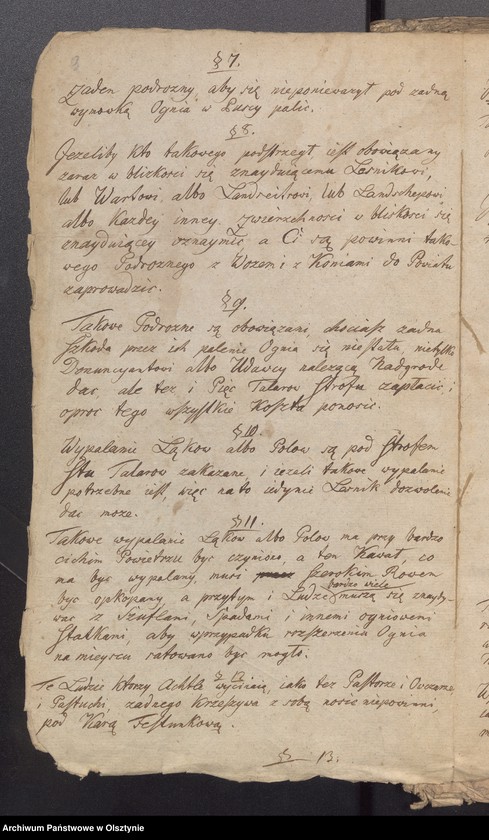 § 7.
Żaden podrozny, aby się nieponieważył pod zadną
wymowką Ognia w Puscy palic.
§ 8.
Jezeliby kto takowego podstrzegł, iest obowiązany
zaraz w blizkosci się znayduiącemu Lesnikowi,
lub Wartowi, albo Landreitrowi, lub Landschepowi,
albo Kazdey inney zwierzchnosci w bliskosci się
znayduiącey oznaymic, a Ci są powinni tako-
wego Podroznego z Wozem i z Koniami do Powiatu
zaprowadzic.
§ 9.
Takowe Podrozne są obowiązani chociasz zadna
Szkoda przez ich palenie Ognia się niestała, nietylko
Denuncyantowi albo Udawcy nalezącą Nadgrode
dac, ale tez i Pięc Talarow Strofu zapłacic i
oproc tego wszystkie Koszta ponosic.
§ 10
Wypalanie Ląkow albo Polow są pod Strofem
Stu Talarow zakazane, i iezeli takowe wypalanie
potrzebne iest, więc na to iedynie Lesnik dozwolenie
dac moze.
§ 11.
Takowe wypalanie Ląkow albo Polow ma przy bardzo
cichim Powietrzu byc czyniono, a ten Kawał co
ma bys wypalany, musi Szerokim Rowem
byc opkopany, a przytym i Ludzie bardzo wiele muszą się znaydy-
wac z Szuflami, Spadami i innemi ogniowemi
Statkami, aby w przypadku rozszerzenia Ognia
na mieyscu ratowano byc mogło.
§ 12
Te Ludzie ktorzy Achtle wycinaią, iako tez Pasterze i Owczarze,
i Pastuchi, zadnego Krzesywa z sobą nosic niepowinni,
pod Karą Festunkową.
§ 13.
Archiwum Państwowe w Olsztynie